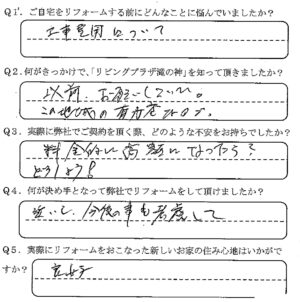 Q1. ご自宅をリフォームする前にどんなことに悩んでいましたか?
工事範囲について
Q2. 何がきっかけで、「リビングプラザ滝の神」を知って頂きましたか?
以前、お願いしていた。
この地域の
Q3. 実際に弊社でご契約を頂く際、どのような不安をお持ちでしたか?
料金的に高額になったら?
どうしよう?
Q4. 何が決め手となって弊社でリフォームをして頂けましたか?
近いし、今後の事も考慮して
Q5. 実際にリフォームをおこなった新しいお家の住み心地はいかがで
すか?
良好